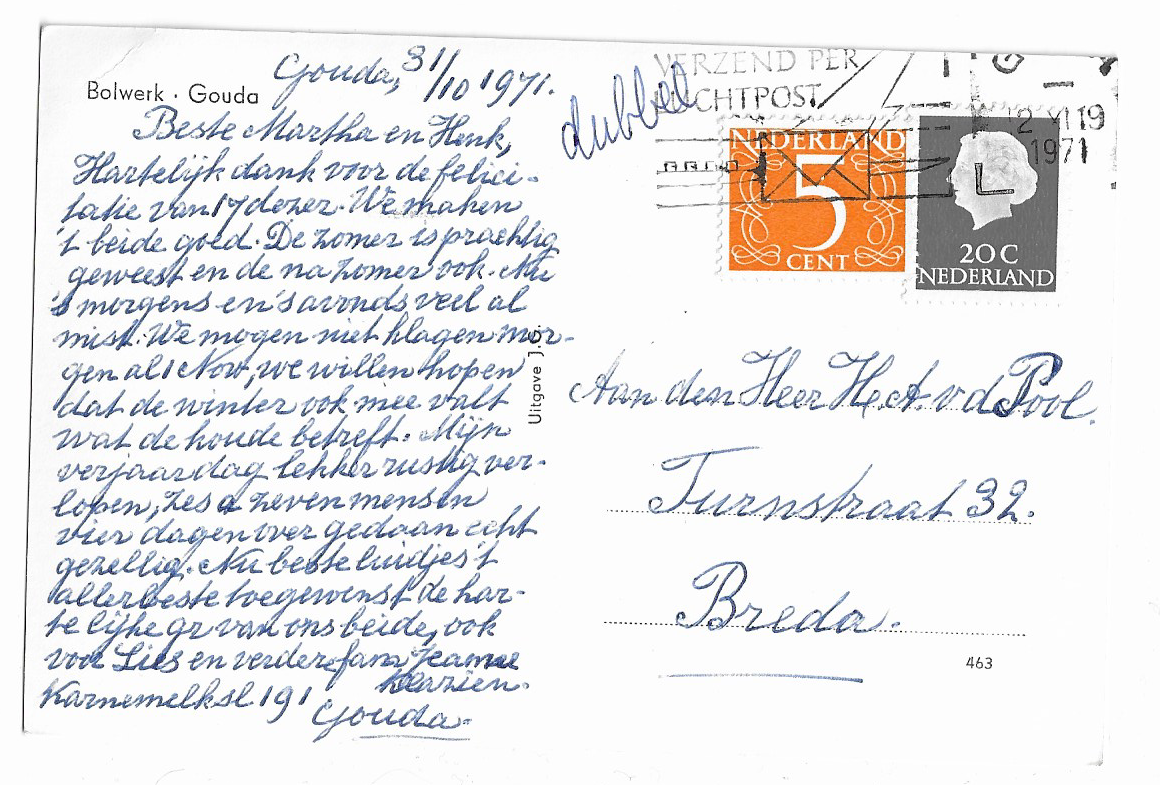 Bolwerk · Gouda
Gouda, 31/10 1971.
Beste Martha en Henk,
Hartelijk dank voor de felici-
tatie van 17 dezer. We maken
't beide goed. De zomer is prachtig
geweest en de na zomer ook. Nu
's morgens en 's avonds veel al
mist. We mogen niet klagen mor-
gen al 1 Nov, we willen hopen
dat de winter ook mee valt
wat de koude betreft. Mijn
verjaardag lekker rustig ver-
lopen, zes a zeven mensen
vier dagen over gedaan echt
gezellig. Nu beste luidjes 't
allerbeste toegewenst de har-
telijke gr van ons beide, ook
voor Lies en verdere fam
Karnemelksl 191
Gouda.
Uitgave J.G.
dubbel
VERZEND PER
LUCHTPOST
2 XI 19
1971
NEDERLAND
5
CENT
20 C
NEDERLAND
Aan den Heer H. A. v d Pool.
Turnstraat 32.
Breda.
463